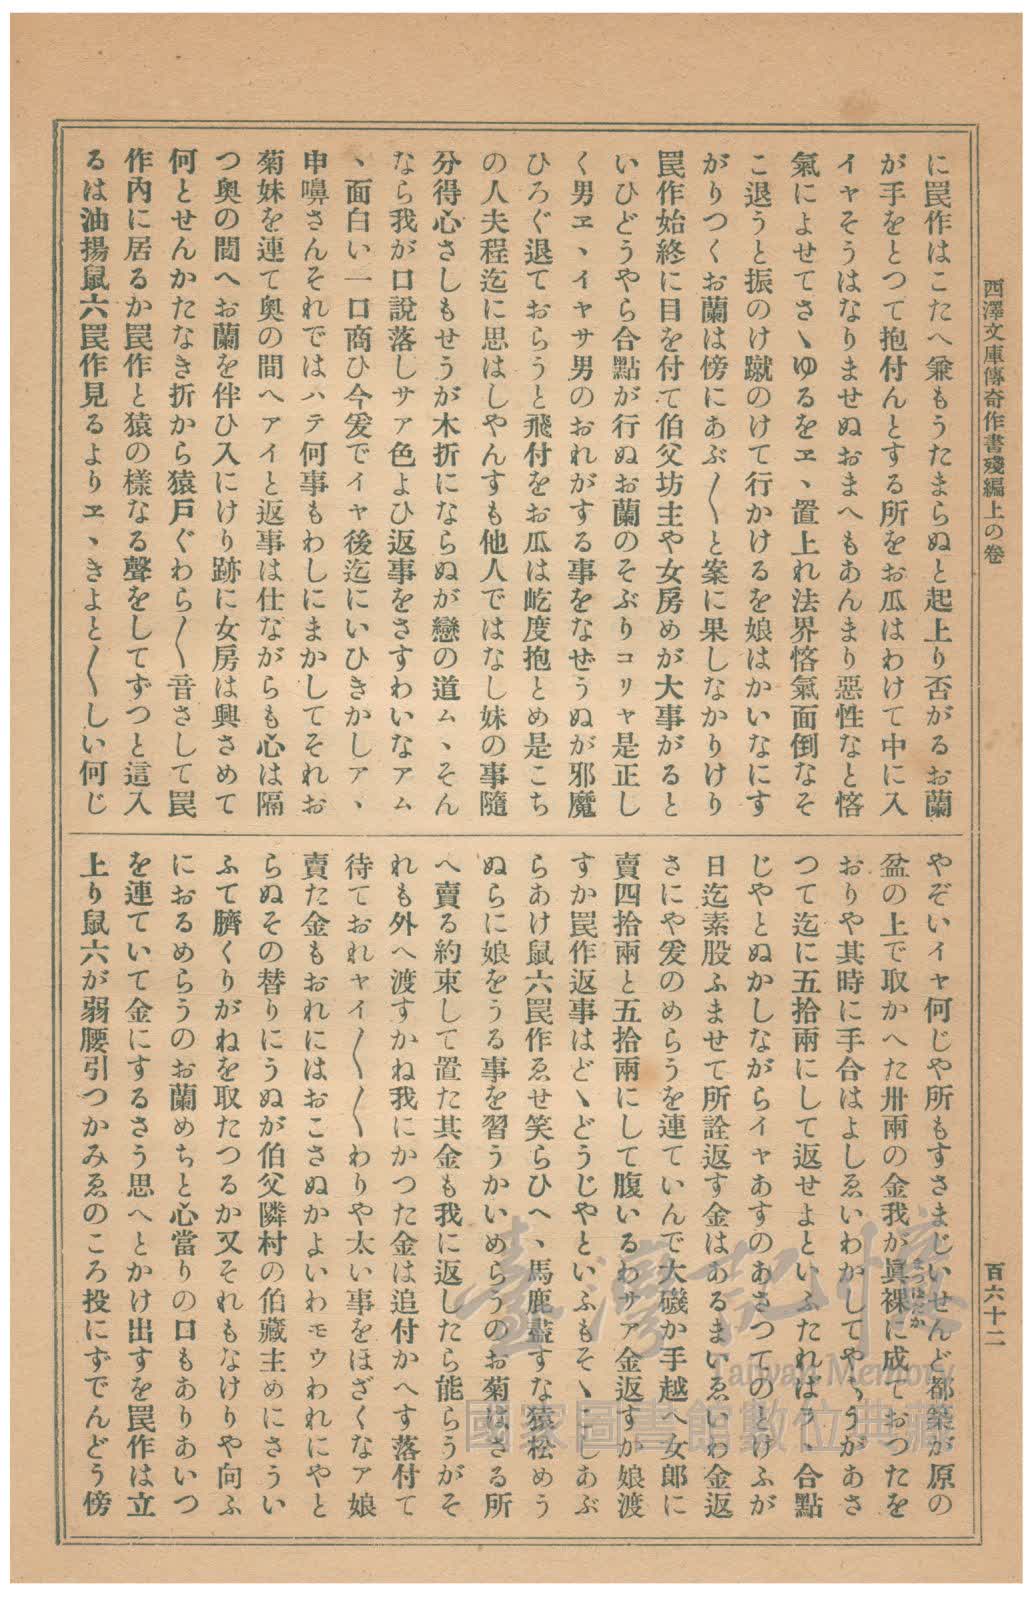 西澤文庫傳奇作書殘編上の卷
百六十二
に罠作はこたへ兼もうたまらぬと起上り否がるお蘭
が手をとつて抱付んとする所をお瓜はわけて中に入
イヤそうはなりませぬおまへもあんまり惡性なと悋
氣によせてさヽゆるをヱヽ置上れ法界悋氣面倒なそ
こ退うと振のけ蹴のけて行かけるを娘はかいなにす
がりつくお蘭は傍にあぶ〱と案に果しなかりけり
罠作始終に目を付て伯父坊主や女房めが大事がると
いひどうやら合點が行ぬお蘭のそぶりコリヤ是正し
く男ヱヽイヤサ男のおれがする事をなぜうぬが邪魔
ひろぐ退ておらうと飛付をお瓜は屹度抱とめ是こち
の人夫程迄に思はしやんすも他人ではなし妹の事隨
分得心さしもせうが木折にならぬが戀の道ムヽそん
なら我が口說落しサア色よひ返事をさすわいなアム
ヽ面白い一口商ひ今爰でイヤ後迄にいひきかしアヽ
申嚊さんそれではハテ何事もわしにまかしてそれお
菊妹を連て奧の間へアイと返事は仕ながらも心は隔
つ奧の間へお蘭を伴ひ入にけり跡に女房は興さめて
何とせんかたなき折から猿戶ぐわら〱音さして罠
作內に居るか罠作と猿の樣なる聲をしてずつと這入
るは油揚鼠六罠作見るよりヱヽきよと〱しい何じ
やぞいイヤ何じや所もすさまじいせんど都築が原の
盆の上で取かへた卅兩の金我が眞裸に成ておつたを
まつはだか
おりや其時に手合はよしゑいわかしてやうがあさ
つて迄に五拾兩にして返せよといふたればヲヽ合點
じやとぬかしながらイヤあすのあさつてのとけふが
日迄素股ふませて所詮返す金はあるまいゑいわ金返
さにや爰のめらうを連ていんで大磯か手越へ女郞に
賣四拾兩と五拾兩にして腹いるわサア金返すか娘渡
すか罠作返事はどヽどうじやといふもそヽしあぶ
らあけ鼠六罠作ゑせ笑らひへヽ馬鹿盡すな猿松めう
ぬらに娘をうる事を習うかいめらうのお菊はさる所
へ賣る約束して置た其金も我に返したら能らうがそ
れも外へ渡すかね我にかつた金は追付かへす落付て
待ておれヤイ〱〱わりや太い事をほざくなア娘
賣た金もおれにはおこさぬかよいわモウわれにやと
らぬその替りにうぬが伯父隣村の伯藏主めにさうい
ふて臍くりがねを取たつるか又それもなけりや向ふ
におるめらうのお蘭めちと心當りの口もありあいつ
を連ていて金にするさう思へとかけ出すを罠作は立
上り鼠六が弱腰引つかみゑのころ投にずでんどう傍
臺灣記憶
Taiwan Memory
國家圖書館數位典藏